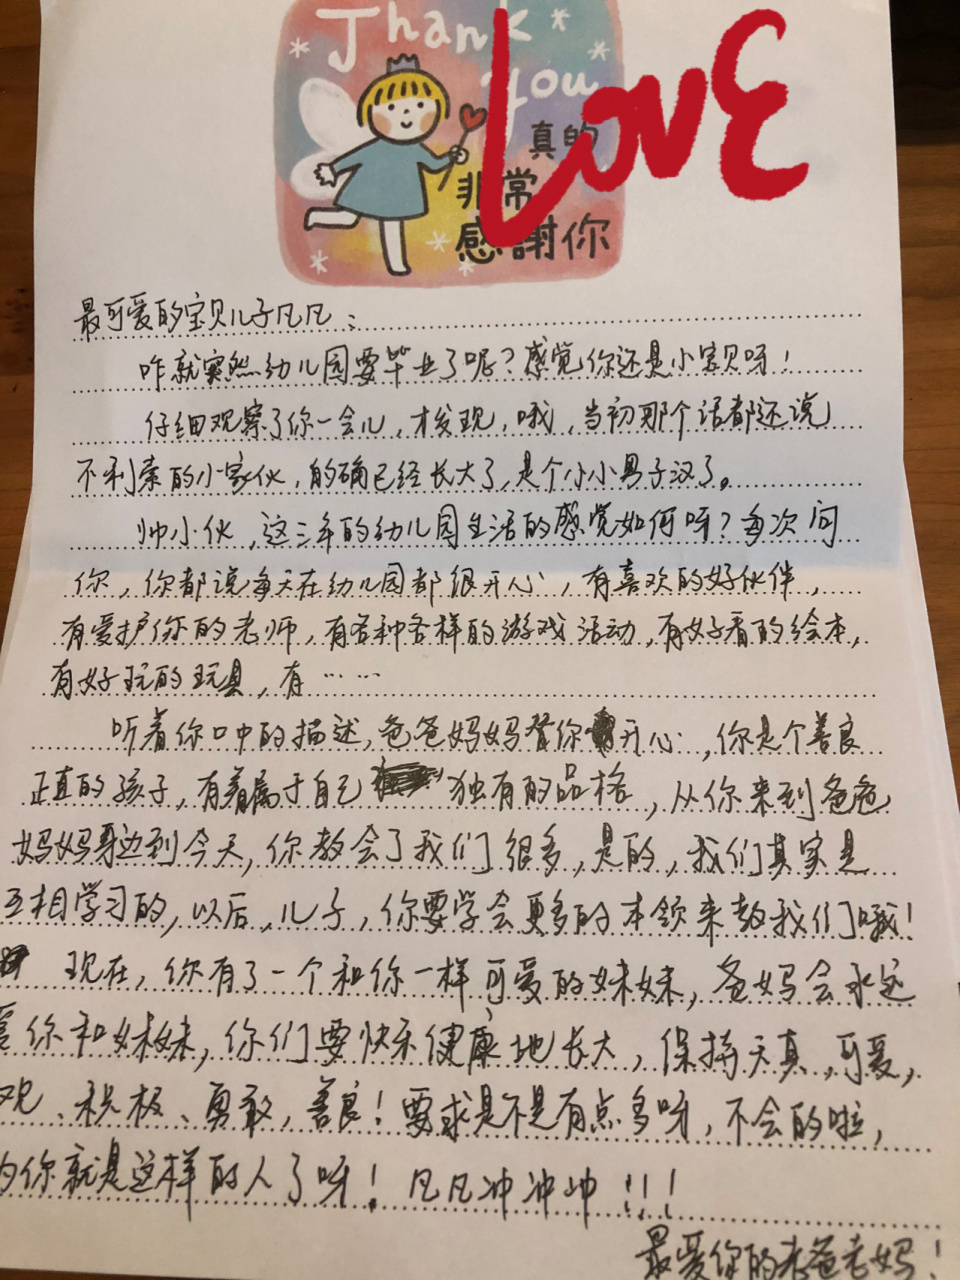 Thank you
LOVE
真的
非常
感謝你
最可爱的宝贝儿子凡凡：
咋就突然幼儿园要毕业了呢？感觉你还是小宝贝呀！
仔细观察了你一会儿，才发现，哦，当初那个话都还说
不利索的小家伙，的确已经长大了，是个小小男子汉了。
帅小伙，这三年的幼儿园生活的感觉如何呀？每次问
你，你都说每天在幼儿园都很开心，有喜欢的好伙伴，
有爱护你的老师，有各种各样的游戏活动，有好看的绘本，
有好玩的玩具，有……
听着你口中的描述，爸爸妈妈替你开心，你是个善良
正直的孩子，有着属于自己独有的品格，从你来到爸爸
妈妈身边到今天，你教会了我们很多，是的，我们其家是
互相学习的，以后，儿子，你要学会更多的本领来教我们哦！
现在，你有了一个和你一样可爱的妹妹，爸妈会永远
爱你和妹妹，你们要快乐健康地长大，保持天真，可爱，
观、积极、勇敢，善良！要求是不是有点多呀，不会的啦，
为你就是这样的人了呀！凡凡冲冲冲！！！
最爱你的老爸老妈！